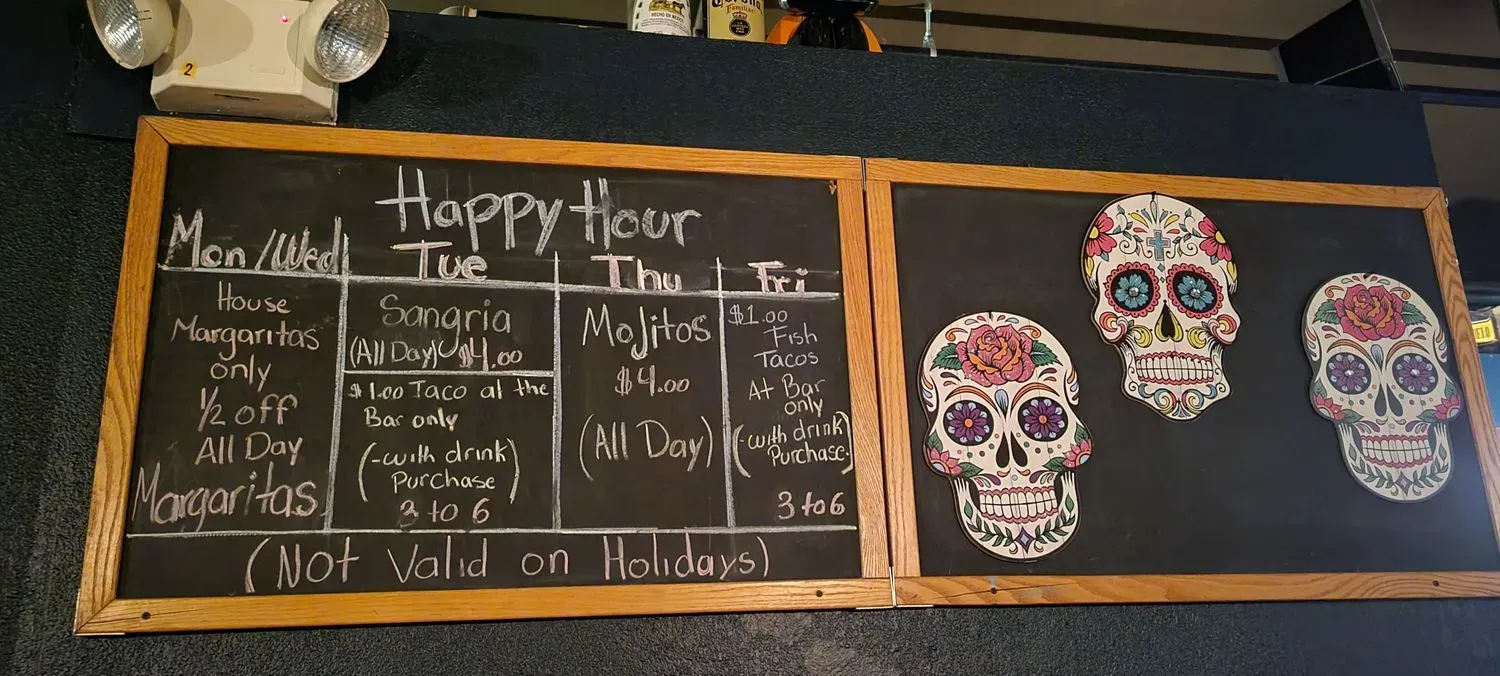 2
HECHO EN MEXICO
Corona
Familiar
Happy Hour
Mon/Wed
House
Margaritas
only
1/2 off
All Day
Margaritas
Tue
Sangria
(All Day) $4.00
$1.00 Taco at the
Bar only
(-with drink
Purchase)
3 to 6
Thu
Mojitos
$4.00
(All Day)
Fri
$1.00
Fish
Tacos
At Bar
only
(-with drink
Purchase.)
3 to 6
(Not Valid on Holidays)